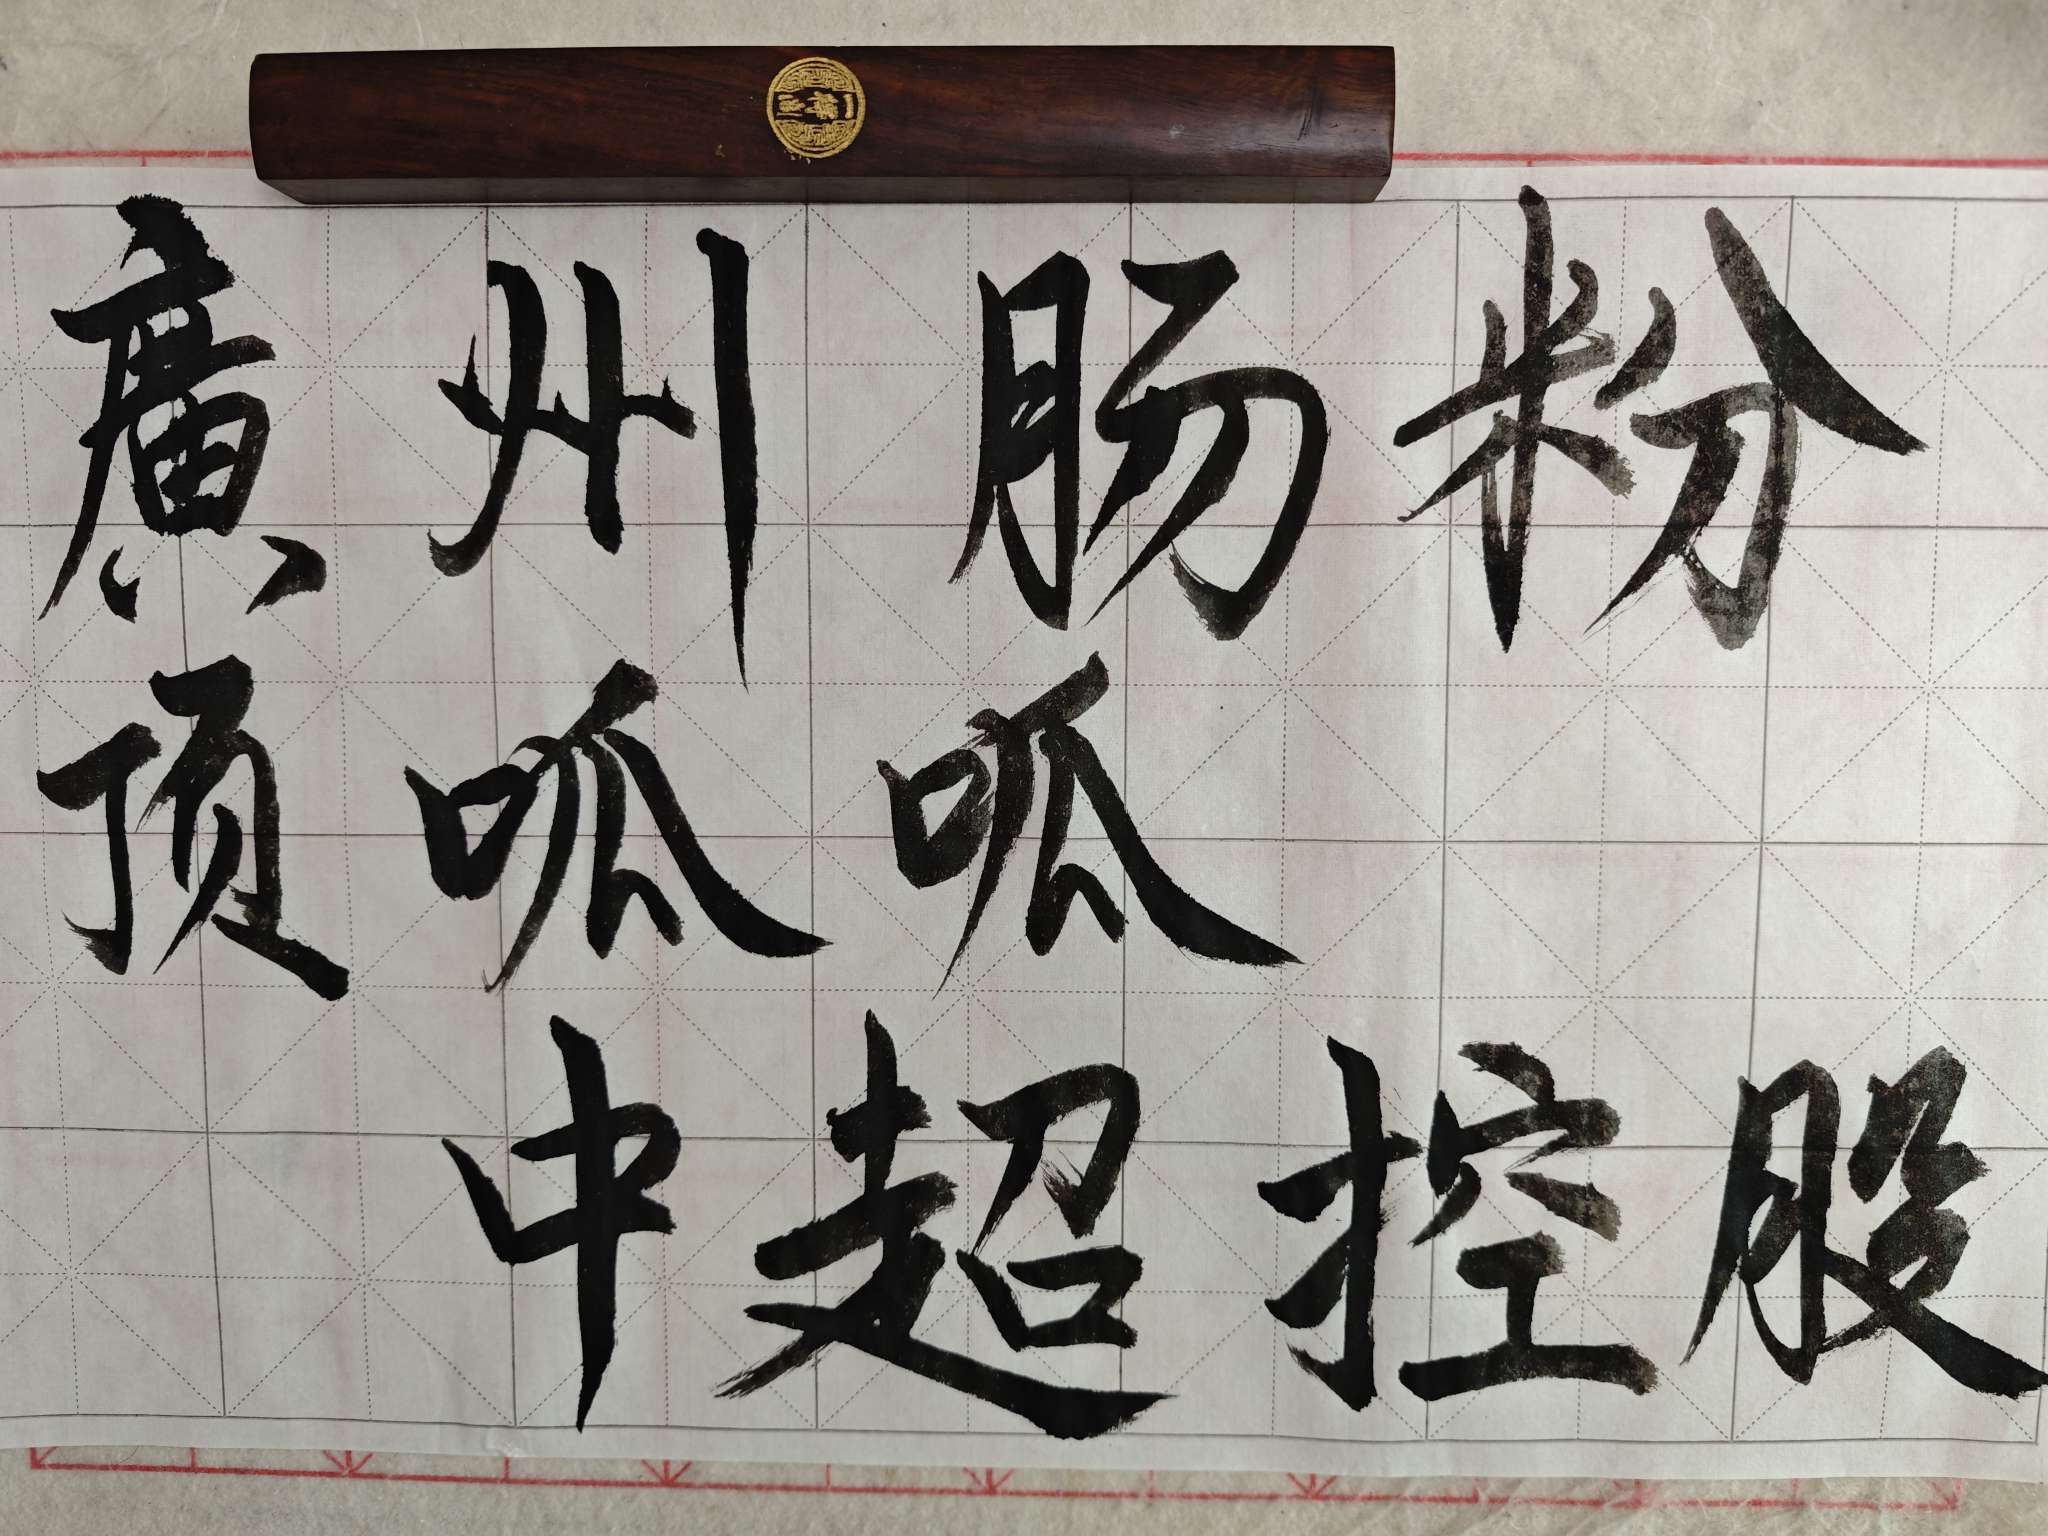 廣州肠粉
顶呱呱
中超控股